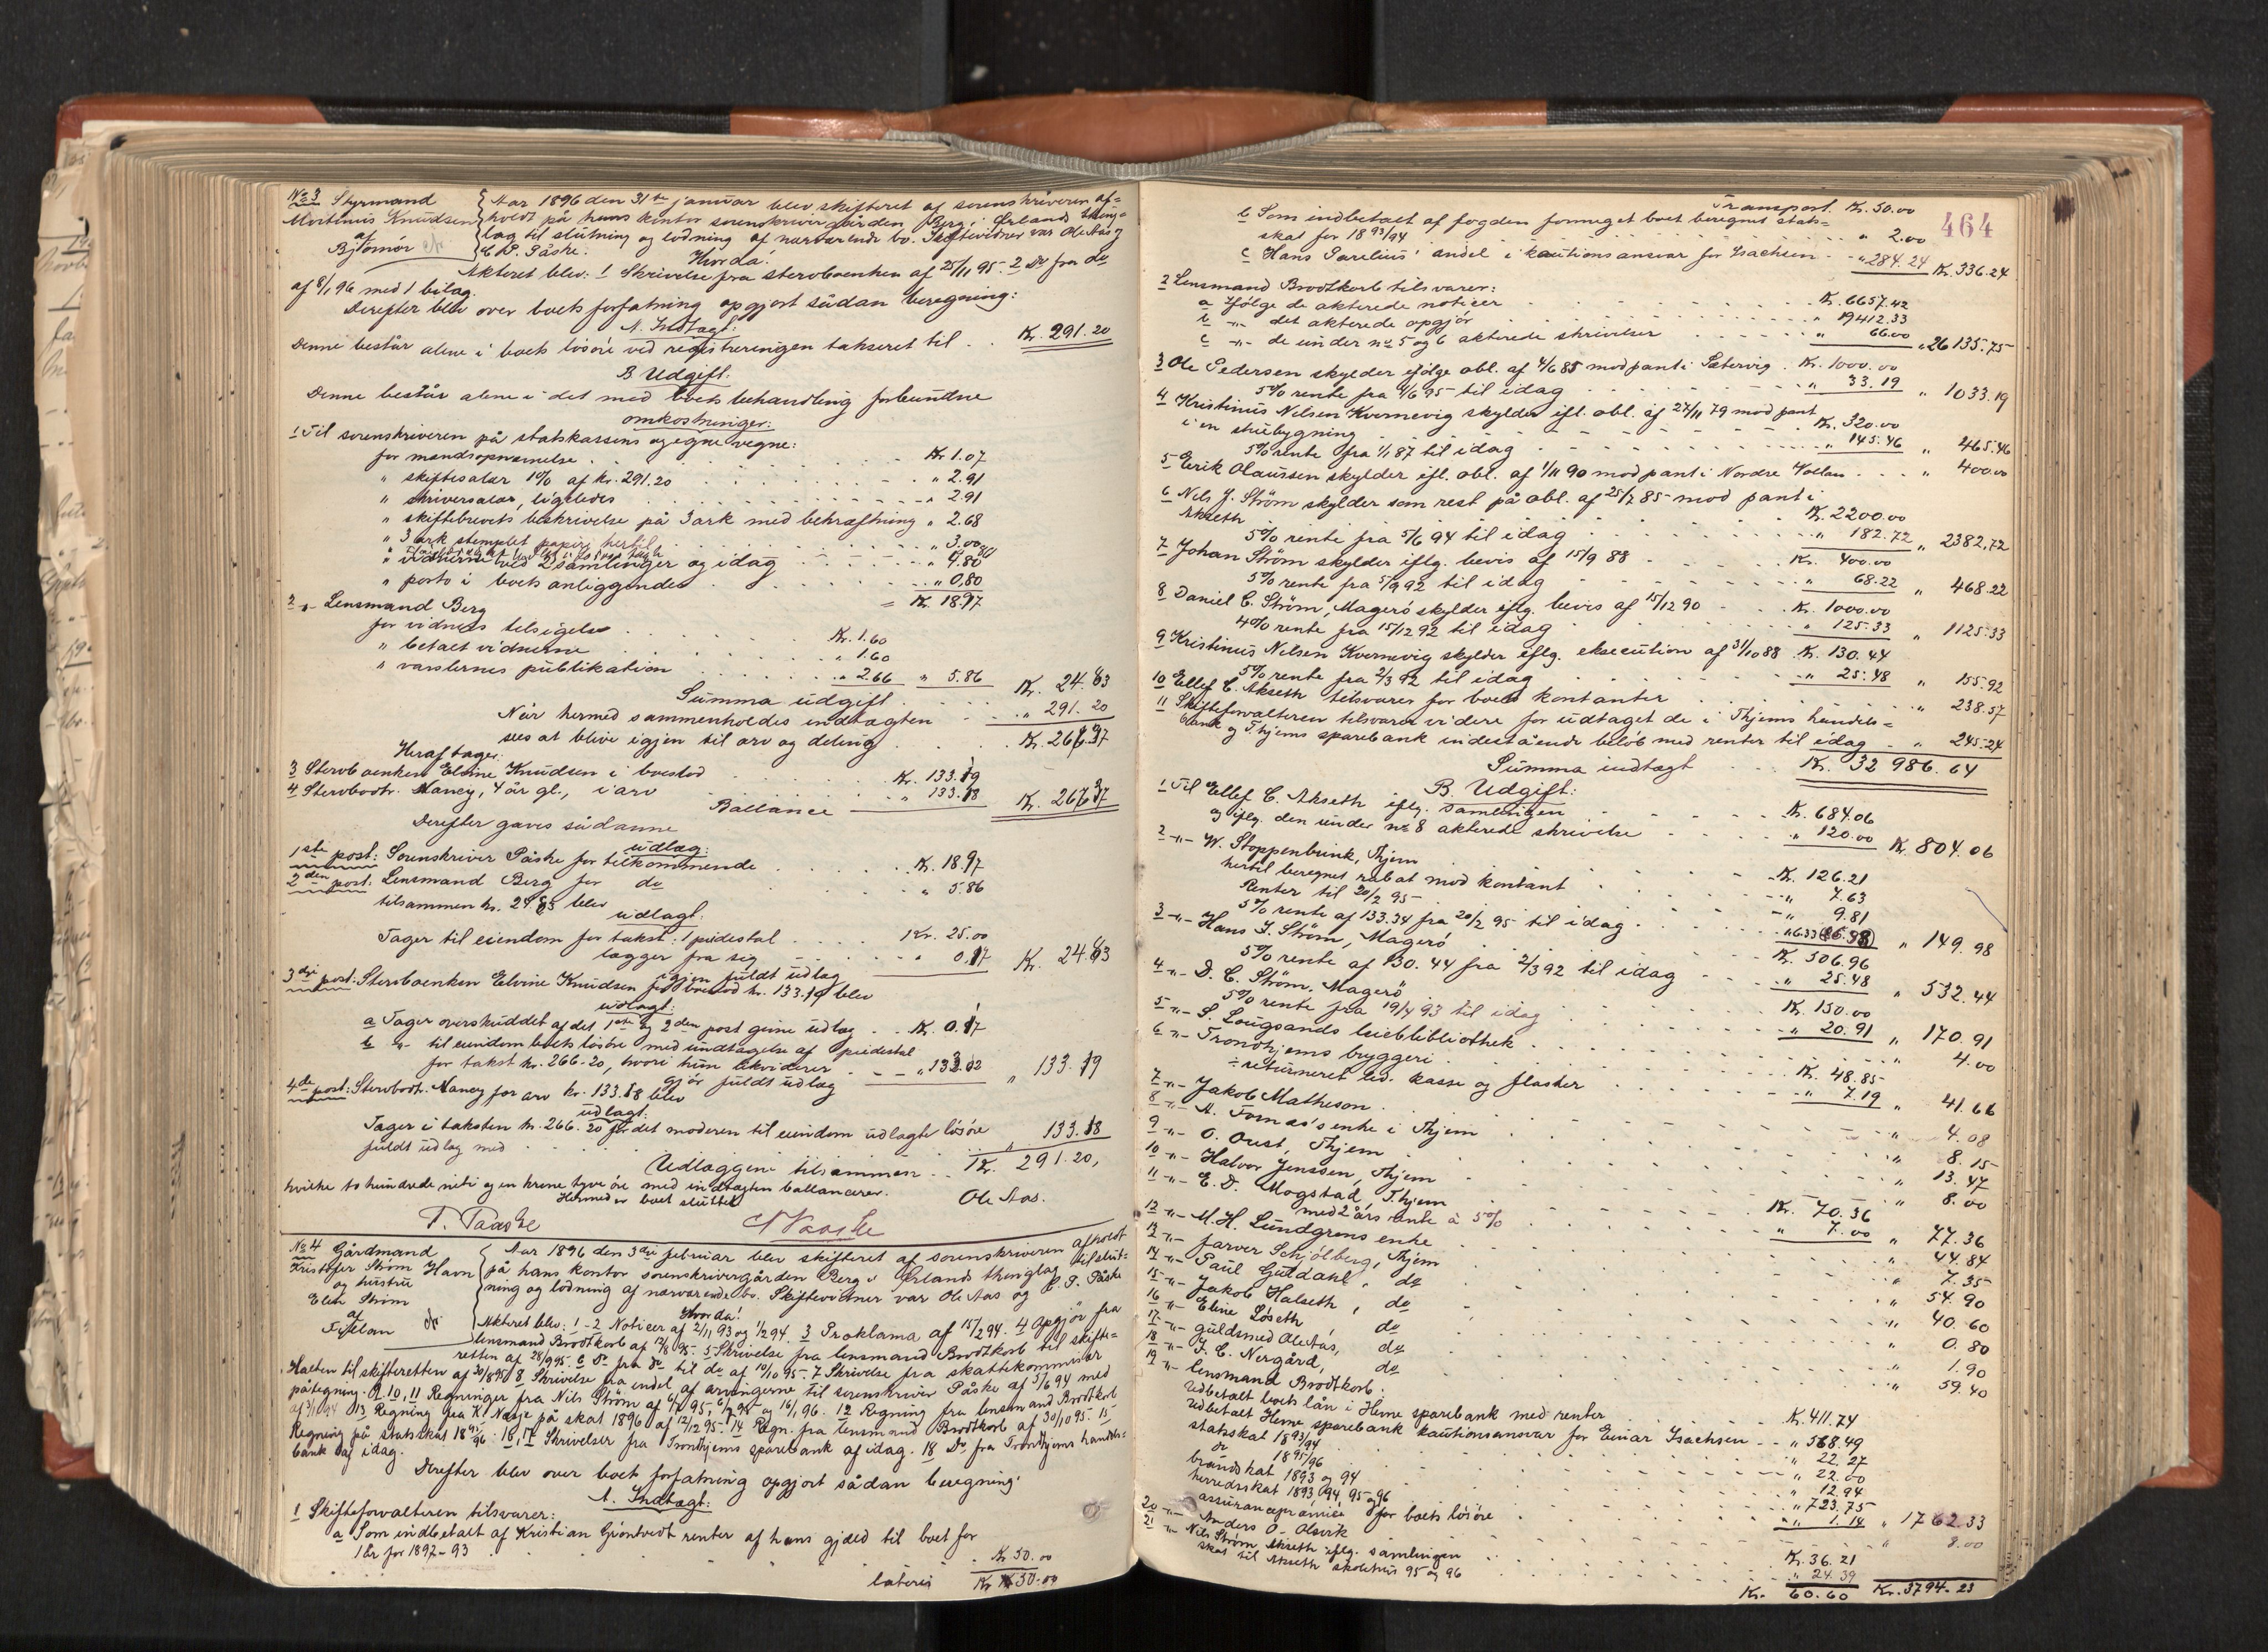 No 3 Styrmand
Mortinus Knudsen
af
Bjørnør
Aar 1896 den 31te januar blev skifteret af sorenskriveren af=
holdt på hans kontor sorenskrivergården Berg i Ørlands thing=
lag til slutning og lodning af nærværende bo. Skiftevidner var Ole Aas og
C. P. Påske.
Hvorda!
Akteret blev: 1 Skrivelse fra stervboenken af 25/11 95. 2 Do fra do
af 8/1 96 med 1 bilag.
Derefter blev over boets forfatning opgjort sådan beregning:
A. Indtægt:
Denne består alene i boets løsøre ved registreringen takseret til . . Kr. 291.20
B Udgift:
Denne består alene i det med boets behandling forbundne
omkostninger:
1 Til sorenskriveren på statskassens og egne vegne:
for mandsopnævnelse . . Kr 1.07
" skiftesalær 1% af kr. 291.20 . . " 2.91
" skriversalær, ligeledes . . " 2.91
" skiftebrevets beskrivelse på 3 ark med bekræftning " 2.68
" 3 ark stemplet papir hertil . . " 3.00
" vidnerne ved 2 samlinger og idag . . " 4.80
" porto i boets anliggender . . " 0.80
= Kr. 18.97
2 " Lensmand Berg
for vidners tilsigelse . . Kr. 1.60
" betalt vidnerne . . " 1.60
" varslernes publikation . . " 2.66 " 5.86
Summa udgift . . Kr. 24.83
Når hermed sammenholdes indtægten . . " 291.20
sees at blive igjen til arv og deling . . Kr. 266.37
Heraf tager:
3 Stervboenken Elvine Knudsen i boeslod . . Kr. 133.19
4 Stervbodtr. Nancy, 4 år gl., i arv . . " 133.18
Ballance Kr. 266.37
Derefter gaves sådanne
udlæg:
1ste post: Sorenskriver Påske for tilkommende . . Kr. 18.97
2den post: Lensmand Berg for do . . " 5.86
tilsammen kr. 24.83 blev
udlagt:
Tager til eiendom for takst: 1 piedestal . . Kr. 25.00
lægger fra sig . . " 0.17 Kr. 24.83
igjen fuldt udlæg
3die post: Stervboenken Elvine Knudsen for boeslod kr. 133.19 blev
udlagt:
a Tager overskuddet af det 1ste og 2den post givne udlæg . . Kr. 0.17
b " til eiendom boets løsøre med undtagelse af piedestal
for takst kr. 266.20, hvori hun likviderer . . " 133.02 " 133.19
gjør fuldt udlæg
4de post: Stervbodtr. Nancy for arv kr. 133.18 blev
udlagt:
Tager i taksten kr. 266.20 for det moderen til eiendom udlagte løsøre
fuldt udlæg med . . " 133.18
Udlæggene tilsammen . . Kr. 291.20,
hvilke to hundrede niti og en krone tyve øre med indtægten ballancerer.
Hermed er boet sluttet
Ole Aas.
P. Paaske
C Paaske
No 4 Gårdmand
Kristofer Strøm Havn
og hustru
Elen Strøm
af
Fjellan
Aar 1896 den 3die februar blev skifteret af sorenskriveren afholdt
på hans kontor sorenskrivergården Berg i Ørlands thinglag til slut=
ning og lodning af nærværende bo. Skiftevidner var Ole Aas og C. P. Påske
Hvorda!
Akteret blev: 1-2 Noticer af 2/11 93 og 1/2 94. 3 Proklama af 15/2 94. 4 Opgjør fra
lensmand Brodtkorb af 12/8 95. 5 Skrivelse fra lensmand Brodtkorb til skifte=
retten af 28/9 95. 6 Do fra do til do af 10/10 95. 7 Skrivelse fra skattekommisær
Halten til skifteretten af 30/8 95. 8 Skrivelse fra endel af arvingerne til sorenskriver Påske af 5/6 94 med
påtegning. 9. 10, 11 Regninger fra Nils Strøm af 6/7 95, 6/7 95 og 16/1 96. 12 Regning fra lensmand Brodtkorb
af 3/1 94 13 Regning fra K. Næsje på skat 1896 af 12/12 95. 14 Regn. fra lensmand Brodtkorb af 30/10 95. 15
Regning på statsskat 18 95/96. 16, 17 Skrivelser fra Trondhjems sparebank af idag. 18 Do fra Trondhjems handels=
bank af idag.
Derefter blev over boets forfatning opgjort sådan beregning:
A. Indtægt:
1 Skifteforvalteren tilsvarer:
a Som indbetalt af Kristian Grøntvedt renter af hans gjæld til boet for
1 år for 1892-93 . . Kr 50.00
lateris Kr 50.00
464
Transport. Kr. 50.00
b Som indbetalt af fogden formeget boet beregnet stats=
skat for 18 93/94 . . " 2.00
c Hans Parelius' andel i kautionsansvar for Isachsen . . " 284.24 Kr. 336.24
2 Lensmand Brodtkorb tilsvarer:
a Ifølge de akterede noticer . . Kr. 6657.42
b -"- det akterede opgjør . . " 19412.33
c -"- de under no 5 og 6 akterede skrivelser . . " 66.00 " 26135.75
3 Ole Pedersen skylder ifølge obl. af 4/6 85 mod pant i Sætervig . Kr. 1000.00
5% rente fra 4/6 95 til idag . . " 33.19 " 1033.19
4 Kristinus Nelsen Kvernevig skylder ifl. obl. af 27/11 79 mod pant
i en stuebygning . . Kr. 320.00
5% rente fra 1/1 87 til idag . . " 145.46 " 465.46
5 Erik Olaussen skylder ifl. obl. af 1/11 90 mod pant i Nordre Vollan . . " 400.00
6 Nils J. Strøm skylder som rest på obl. af 25/7 85 mod pant i
Akseth . . Kr. 2200.00
5% rente fra 5/6 94 til idag . . " 182.72 " 2382.72
7 Johan Strøm skylder iflg. bevis af 15/9 88 . . Kr. 400.00
5% rente fra 5/9 92 til idag . . " 68.22 " 468.22
8 Daniel C. Strøm, Magerø skylder iflg. bevis af 15/12 90 . . Kr. 1000.00
4% rente fra 15/12 92 til idag . . " 125.33 " 1125.33
9 Kristinus Nelsen Kvernevig skylder iflg. eksecution af 31/10 88 . Kr. 130.44
5% rente fra 2/3 92 til idag . . " 25.48 " 155.92
10 Ellef C. Akseth tilsvarer for boets kontanter . . " 238.57
11 Skifteforvalteren tilsvarer videre for udtaget de i Thjems handels=
bank og Thjems sparebank indestående beløb med renter til idag . . " 245.24
Summa indtægt . . Kr. 32 986.64
B. Udgift:
1 Til Ellef C. Akseth iflg. samlingen . . Kr. 684.06
og iflg. den under no 8 akterede skrivelse . . " 120.00 Kr. 804.06
2 -"- W. Stoppenbrink, Thjem . . Kr. 126.21
hertil beregnet rabat mod kontant . . " 7.63
Renter til 20/2 95 . . " 9.81
5% rente af 133.34 fra 20/2 95 til idag . . " 6.33 " 149.98
3 -"- Hans J. Strøm, Magerø . . Kr. 506.96
5% rente af 130.44 fra 2/3 92 til idag . . " 25.48 " 532.44
4 -"- D. C. Strøm, Magerø . . Kr. 150.00
5% rente fra 19/4 93 til idag . . " 20.91 " 170.91
5 -"- S. Lougsands leiebibliothek . . " 4.00
6 -"- Trondhjems bryggeri . . Kr. 48.85
÷ returneret led. kasse og flasker . . " 7.19 " 41.66
7 -"- Jakob Matheson . . " 4.08
8 -"- A. Tornæs's enke i Thjem . . " 8.15
9 -"- O. Oust, Thjem . . " 13.47
10 -"- Halvor Jenssen, Thjem . . " 8.00
11 -"- E. D. Mogstad, Thjem . . Kr. 70.36
med 2 års rente à 5% . . " 7.00 " 77.36
12 -"- M. H. Lundgrens enke . . " 44.84
13 -"- farver Schjølberg, Thjem . . " 7.35
14 -"- Paul Guldahl, do . . " 54.90
15 -"- Jakob Halseth, do . . " 40.60
16 -"- Eline Løseth do . . " 0.80
17 -"- guldsmed Ole Aas, do . . " 1.90
18 -"- J. C. Nergård, do . . " 59.40
19 -"- lensmand Brodtkorb:
Udbetalt boets lån i Hevne sparebank med renter . . Kr. 411.74
Udbetalt Hevne sparebank kautionsansvar for Einar Isachsen . . " 568.49
statsskat 18 93/94 . . " 22.27
do 18 95/96 . . " 22.00
brandskat 1893 og 94 . . " 12.94
herredsskat 1893 94 95 og 96 . . " 723.75
assurancepræmie for boets løsøre . . " 1.14 " 1762.33
20 -"- Anders O. Olsvik . . " 8.00
21 -"- Nils Strøm, Akseth iflg. samlingen . . Kr. 36.21
skat til Akseth skolehus 95 og 96 . . " 24.39
Kr. 60.60 Kr. 3794.23